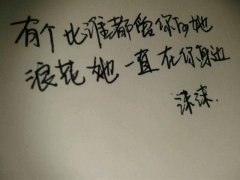 有个比谁都懂你的她
浪花她一直在你身边
沫沫.